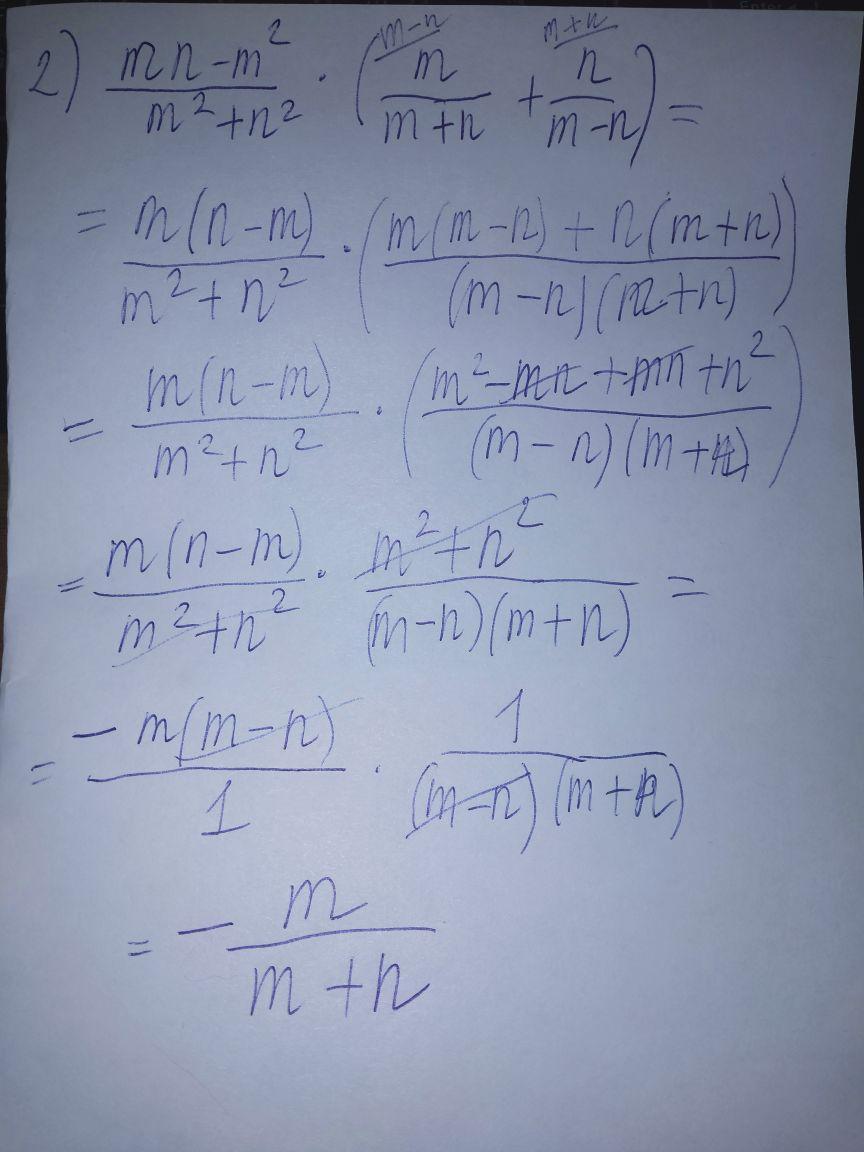 2) \frac{mn-m^2}{m^2+n^2} \cdot \left(\frac{\overset{m-n}{m}}{m+n} + \frac{\overset{m+n}{n}}{m-n}\right) =
= \frac{m(n-m)}{m^2+n^2} \cdot \left(\frac{m(m-n)+n(m+n)}{(m-n)(m+n)}\right)
= \frac{m(n-m)}{m^2+n^2} \cdot \left(\frac{m^2-mn+mn+n^2}{(m-n)(m+n)}\right)
= \frac{m(n-m)}{m^2+n^2} \cdot \frac{m^2+n^2}{(m-n)(m+n)} =
= \frac{-m(m-n)}{1} \cdot \frac{1}{(m-n)(m+n)}
= -\frac{m}{m+n}